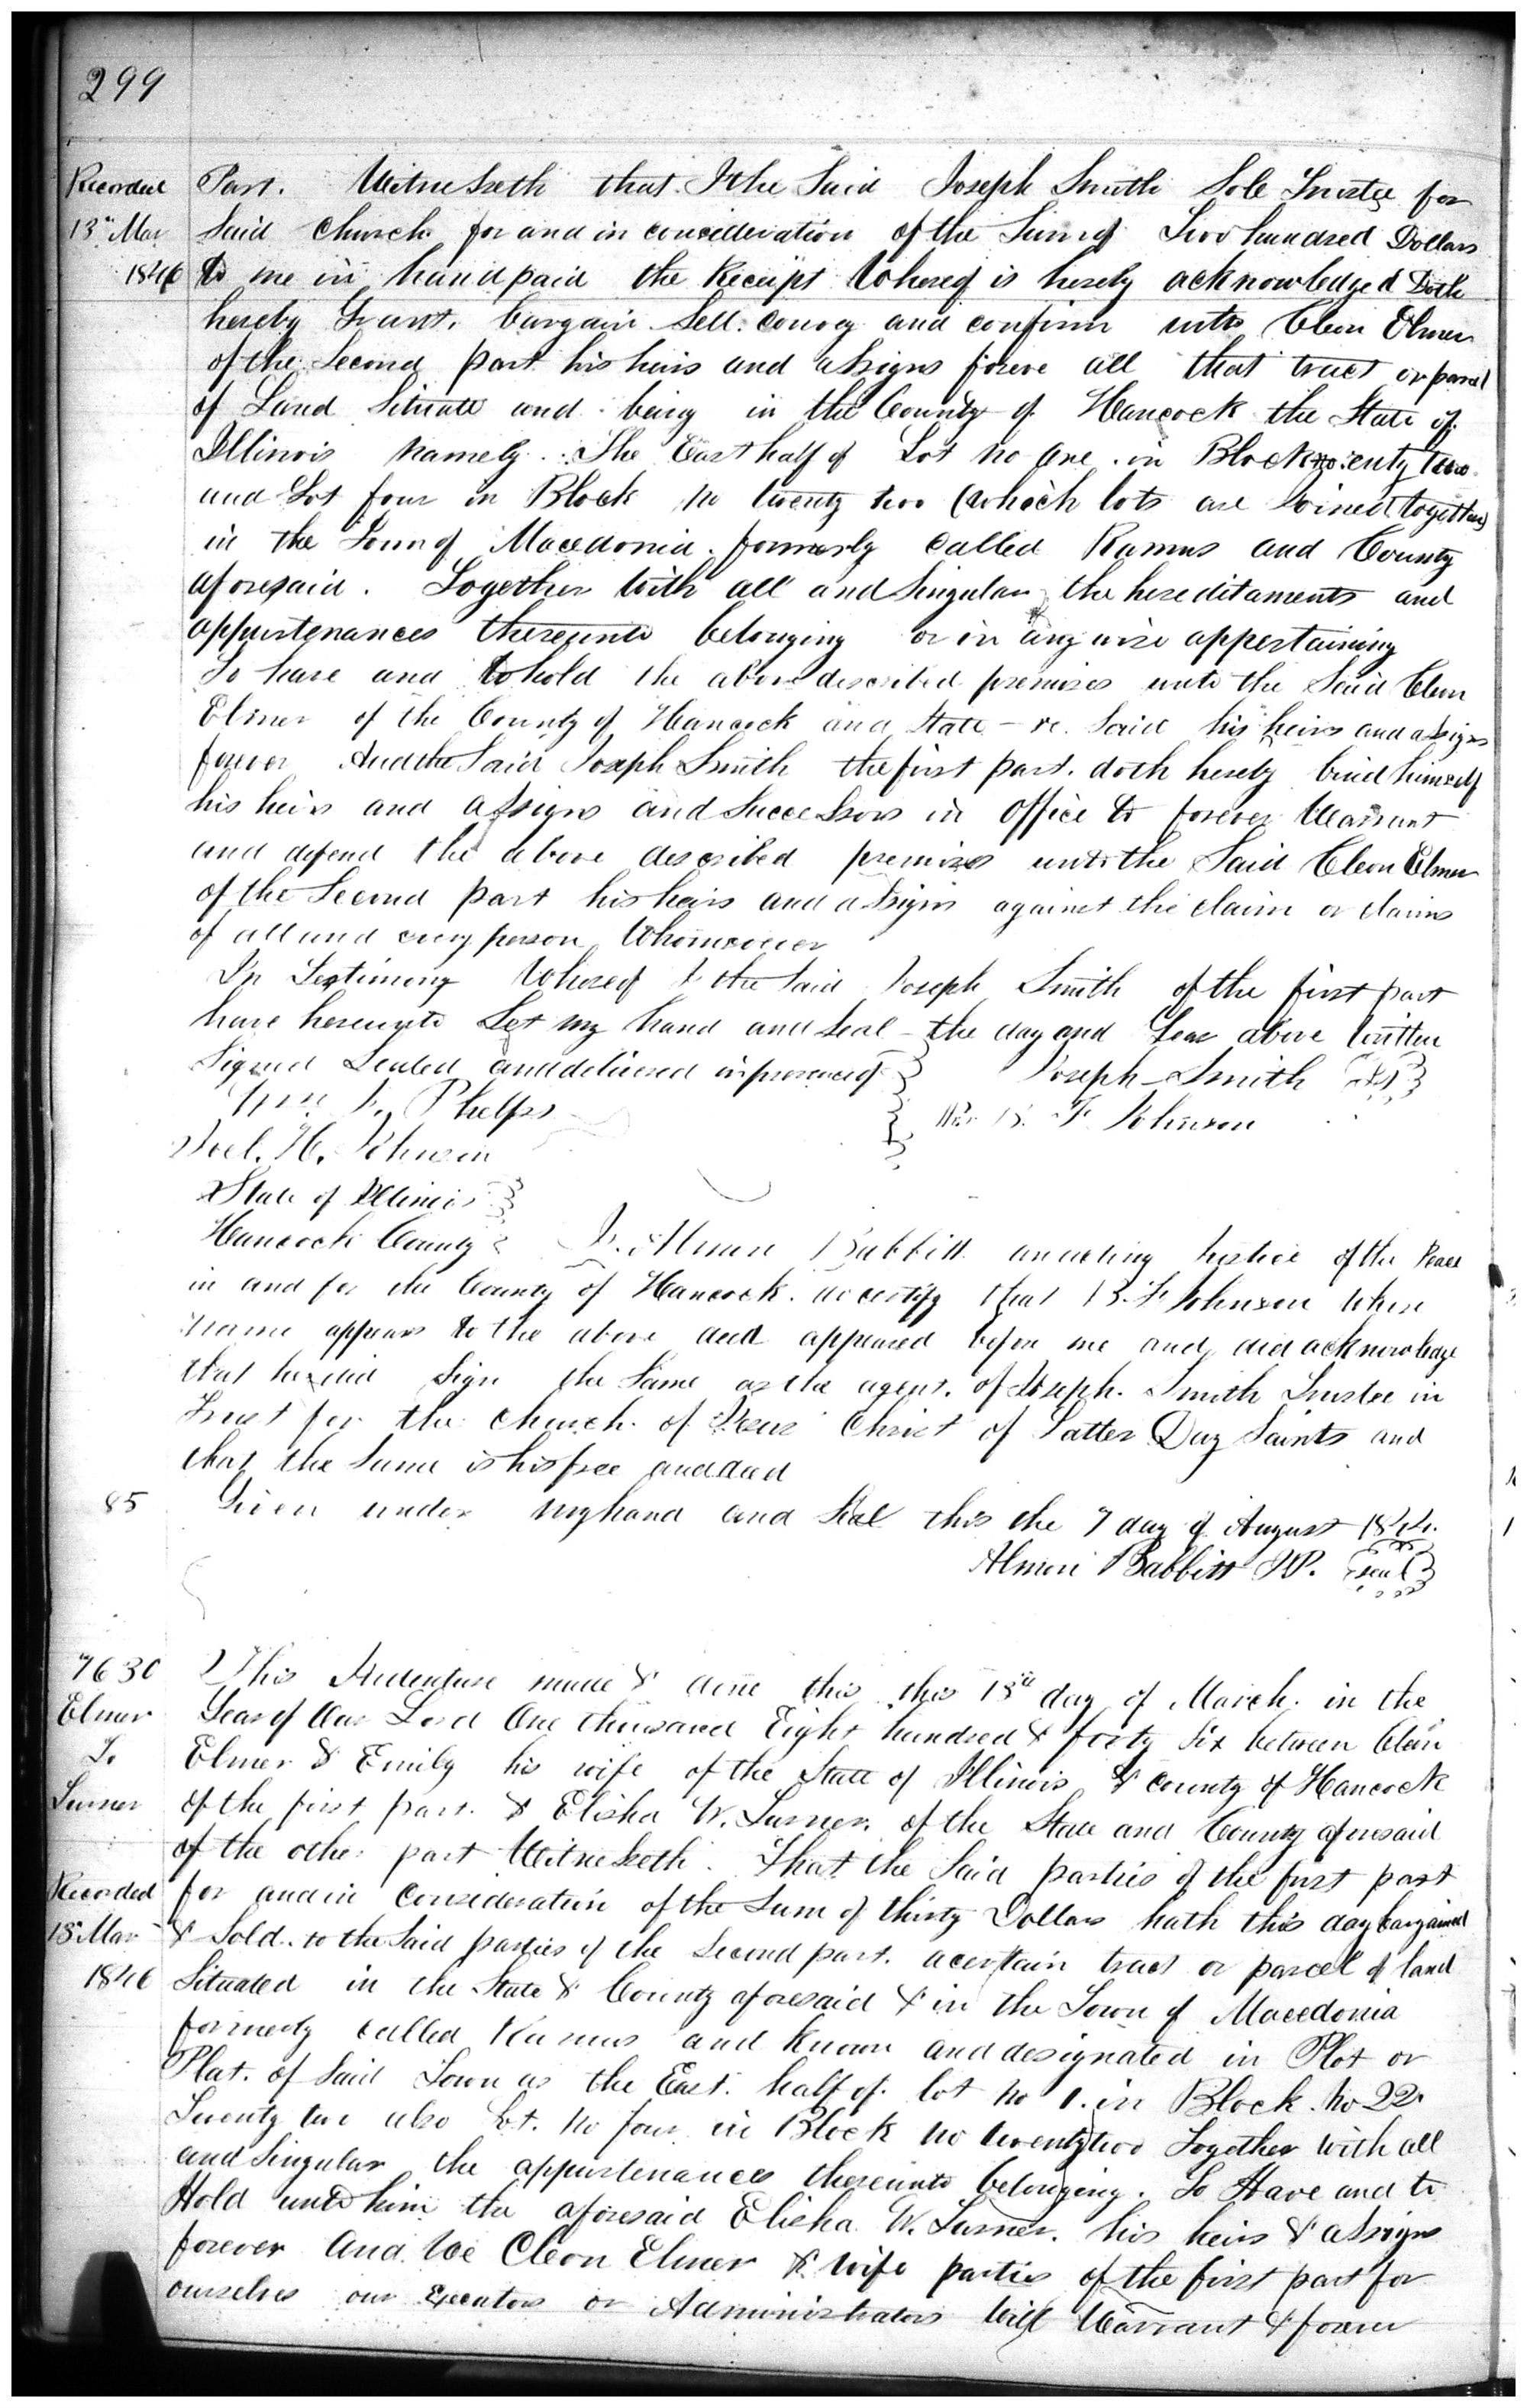 299
Recorded
13th Mar
1846
Part. Witnesseth that I the Said Joseph Smith Sole Trustee for
Said Church for and in consideration of the Sum of Two hundred Dollars
to me in hand paid the Receipt Whereof is hereby acknowledged Doth
hereby Grant, bargain Sell. convey and confirm unto Cleon Elmer
of the Second part his heirs and assigns forever all that tract or parcel
of Land Situate and being in the County of Hancock the State of
Illinois namely. The East half of Lot no One. in Block twenty two
and Lot four in Block no twenty two (which lots are Joined together)
in the Town of Macedonia. formerly Called Ramus and County
aforesaid. Together With all and Singular the hereditaments and
appurtenances thereunto belonging or in any wise appertaining
To have and to hold the above described premises unto the Said Cleon
Elmer of the County of Hancock and State Said his heirs and assigns
forever And the Said Joseph Smith the first part. doth hereby bind himself
his heirs and assigns and Successors in Office to forever Warrant
and defend the above described premises unto the Said Cleon Elmer
of the Second part his heirs and assigns against the claim or claims
of all and every person Whomsoever
In Testimony Whereof I the Said Joseph Smith of the first part
have hereunto Set my hand and Seal the day and Year above Written
Signed Sealed and delivered in presence of
Joseph Smith
Phelps
B. F. Johnson
Joel. H. Johnson
State of Illinois
Hancock County I. Almon Babbitt an acting Justice of the Peace
in and for the County of Hancock. do certify that B. F. Johnson whose
name appears to the above deed appeared before me and did acknowledge
that he did Sign the Same as the agent. of Joseph. Smith Trustee in
Trust for the Church. of Jesus Christ of Latter Day Saints and
that the Same is his free act and deed
85
Given under my hand and Seal this the 7 day of August 1844.
Almon Babbitt J.P. Seal
7630
Elmer
To
Turner
Recorded
13th Mar
1846
This Indenture made & done this this 13th day of March. in the
Year of Our Lord One thousand Eight hundred & forty Six between Cleon
Elmer & Emily his wife of the State of Illinois & County of Hancock
of the first part. & Elisha W. Turner. of the State and County aforesaid
of the other part Witnesseth. That the Said parties of the first part
for and in Consideration of the Sum of thirty Dollars hath this day bargained
& Sold. to the Said parties of the Second part. a certain tract or parcel of land
Situated in the State & County aforesaid & in the Town of Macedonia
formerly called Ramus and known and designated in Plot or
Plat. of Said Town as the East. half of. lot no 1. in Block. No 22
Twenty two also Lot. No four in Block no twenty two Together With all
and Singular the appurtenances thereunto belonging. To Have and to
Hold unto him the aforesaid Elisha. W. Turner. his heirs & assigns
forever And. We Cleon Elmer & Wife parties of the first part for
ourselves our Executors or Administrators Will Warrant & forever